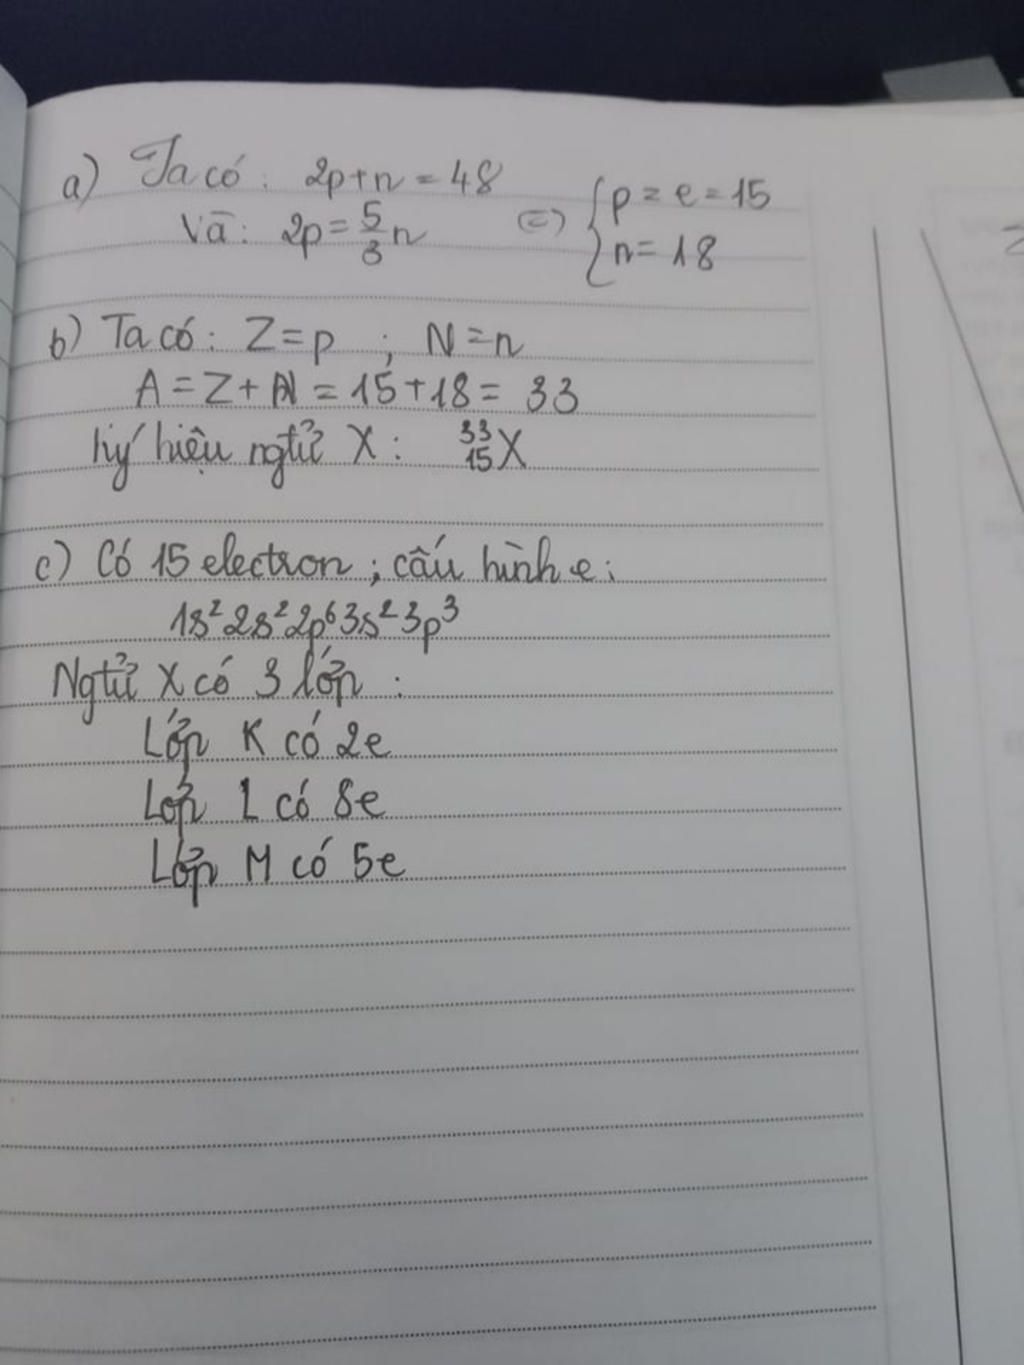 a) Ta có: 2p+n=48
Và: 2p=5/3n (=) { p=e=15
n=18
b) Ta có: Z=p ; N=n
A=Z+N=15+18=33
Ký hiệu ngtử X: ³³₁₅X
c) Có 15 electron; cấu hình e:
1s²2s²2p⁶3s²3p³
Ngtử X có 3 lớp:
Lớp K có 2e
Lớp L có 8e
Lớp M có 5e